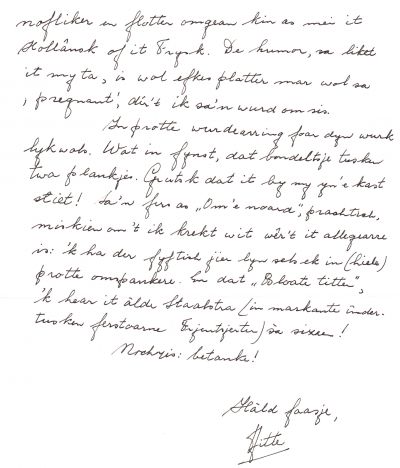 nofliker en flotter omgean kin as mei it
Hollânsk of it Frysk. De humor, sa liket
it my ta, is wol efkes platter mar wol sa
'pregnant', dit't ik sa'n wurd om sis.
In protte wurdearring foar dyn wurk
lykwols. Wat in fynst, dat bondeltsje tusken
twa plankjes. Grutsk dat it by my yn'e kast
stiet! Sa'n fers as "Om'e noard", prachtich,
miskien om't ik krekt wit wêr't it allegearre
is: 'k ha der fyftich jier lyn sels ek in (hiele)
protte omspankere. En dat "Bloate titten",
'k hear it âlde Staalstra (in markante ûnder-
tusken ferstoarne) sa sizzen!
Nochris: betanke!
Hâld faasje,
Jitte